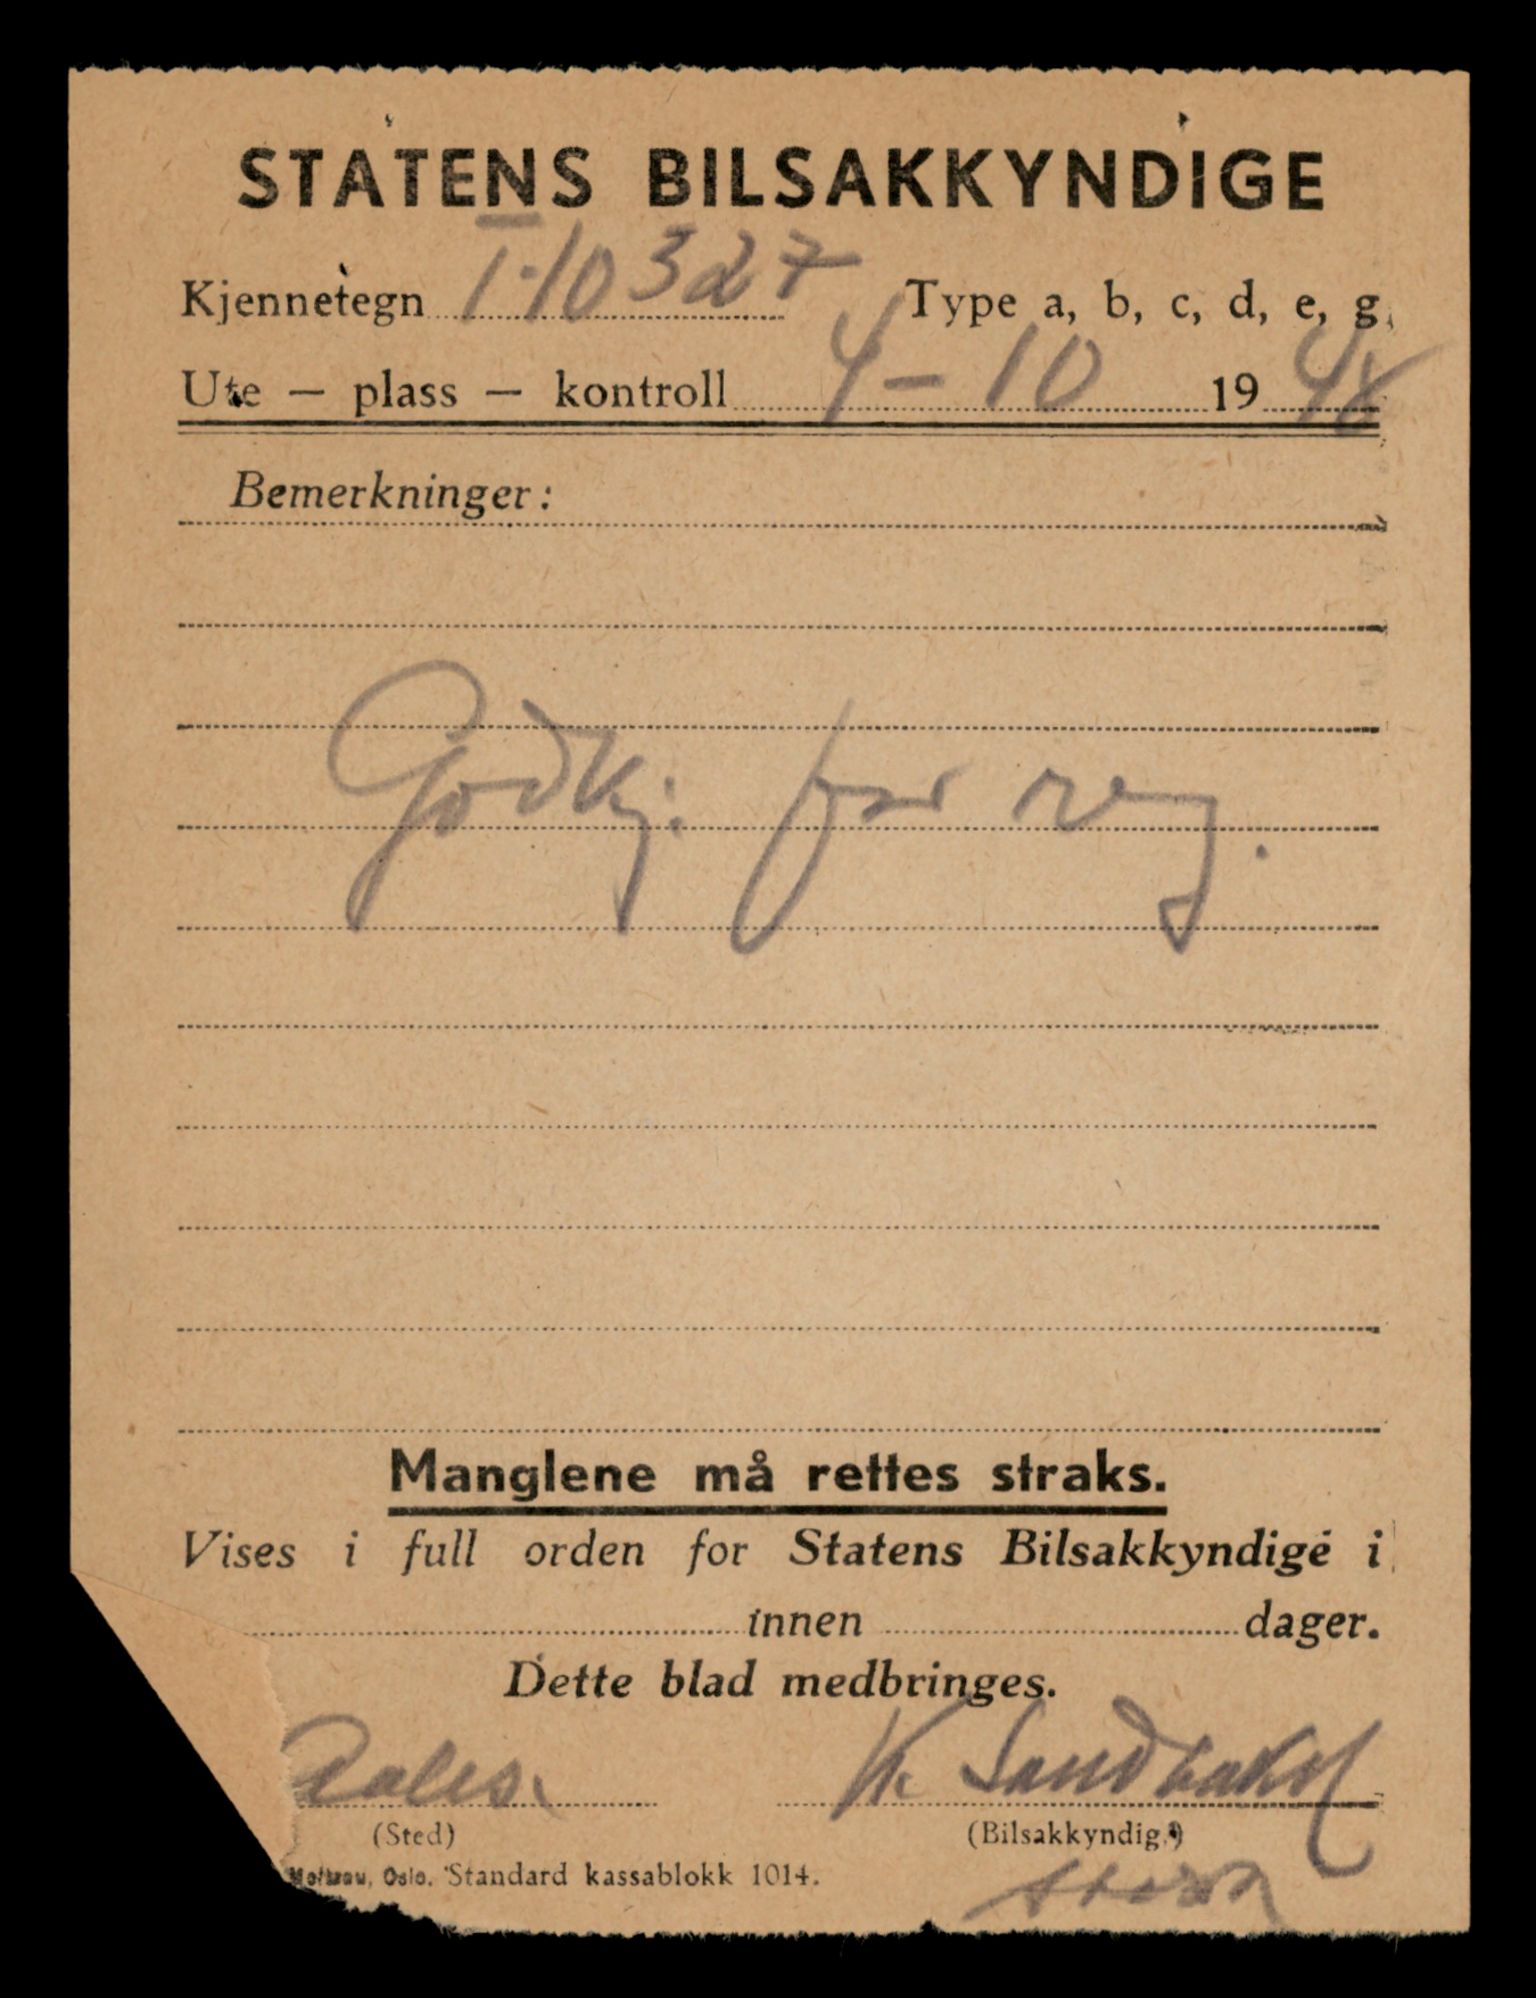 STATENS BILSAKKYNDIGE
Kjennetegn T-10327 Type a, b, c, d, e, g,
Ute — plass — kontroll 4-10 1948
Bemerkninger:
Godkj. for reg.
Manglene må rettes straks.
Vises i full orden for Statens Bilsakkyndige i
innen dager.
Dette blad medbringes.
Aales. K. Sandbakk
(Sted) (Bilsakkyndig.)
Oslo. Standard kassablokk 1014.